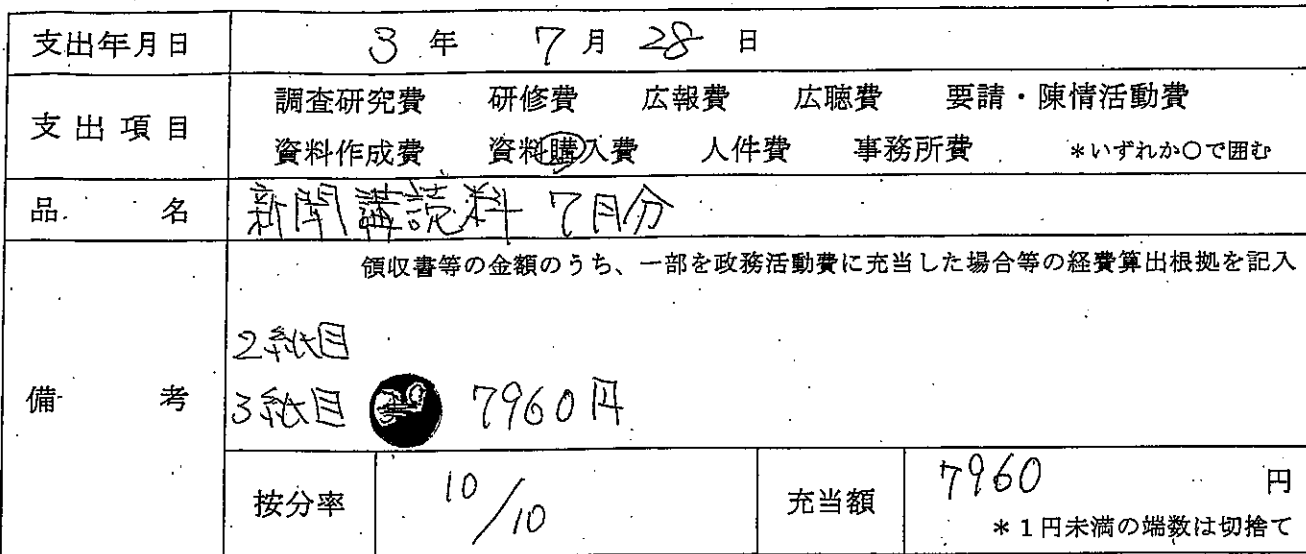 支出年月日 3年 7月 28日
支出項目 調査研究費 研修費 広報費 広聴費 要請・陳情活動費
資料作成費 資料購入費 人件費 事務所費 *いずれか○で囲む
品名 新聞購読料 7月分
領収書等の金額のうち、一部を政務活動費に充当した場合等の経費算出根拠を記入
備考
2紙目
3紙目 7960円
按分率 10/10 充当額 7960 円
*1円未満の端数は切捨て